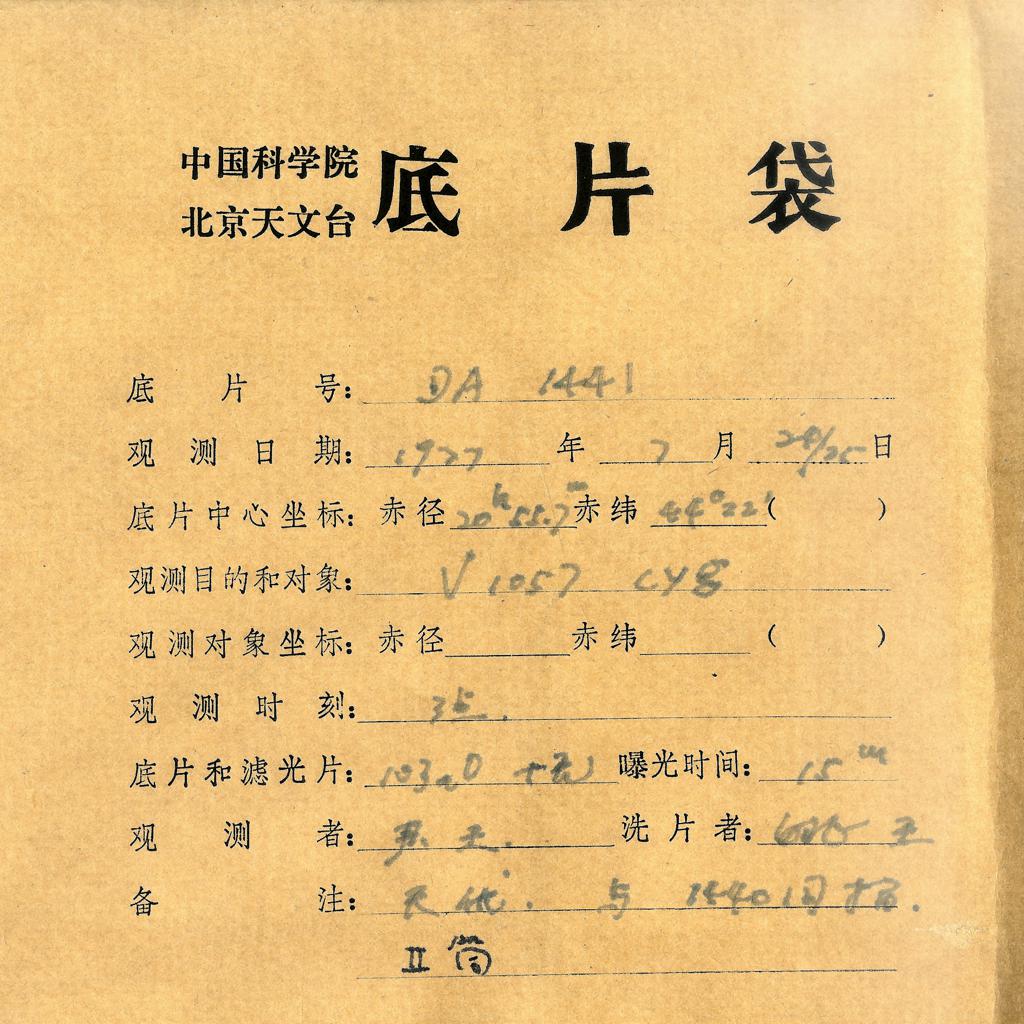 中国科学院
北京天文台
底片袋
底片号: DA 1441
观测日期: 1977 年 7 月 24/25 日
底片中心坐标: 赤径 20h 55.7m 赤纬 44°22′ ( )
观测目的和对象: V 1057 CYG
观测对象坐标: 赤径 赤纬 ( )
观测时刻: 
底片和滤光片: 103aO 曝光时间: 15m
观测者: 洗片者: 王
备注: 与 1440 同
II 筒